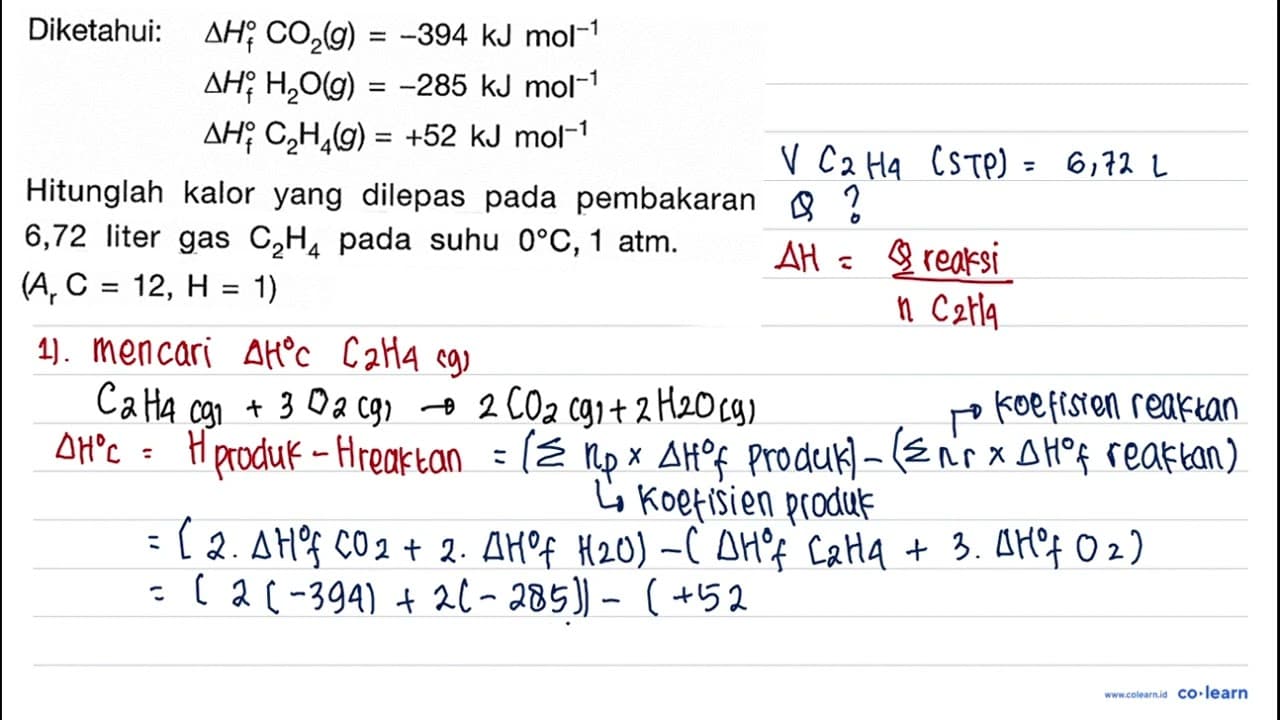 Diketahui: ΔH°f CO₂(g) = −394 kJ mol⁻¹
ΔH°f H₂O(g) = −285 kJ mol⁻¹
ΔH°f C₂H₄(g) = +52 kJ mol⁻¹
Hitunglah kalor yang dilepas pada pembakaran
6,72 liter gas C₂H₄ pada suhu 0°C, 1 atm.
(Aᵣ C = 12, H = 1)
V C2H4 (STP) = 6,72 L
Q ?
ΔH = Q reaksi
n C2H4
1). mencari ΔH°c C2H4 (g)
C2H4 (g) + 3 O2 (g) → 2 CO2 (g) + 2 H2O (g)
↱ koefisien reaktan
ΔH°c = H produk − H reaktan = (Σ np × ΔH°f produk) − (Σ nr × ΔH°f reaktan)
↳ koefisien produk
= (2. ΔH°f CO2 + 2. ΔH°f H2O) − (ΔH°f C2H4 + 3. ΔH°f O2)
= (2 (−394) + 2(−285)) − (+52
www.colearn.id co·learn